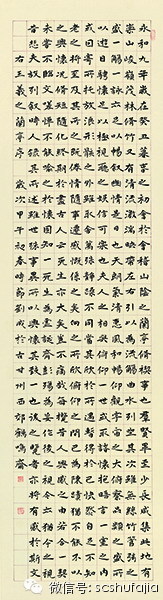 永和九年歲在癸丑暮春之初會于會稽山陰之蘭亭脩稧事也羣賢畢至少長咸集此地有
崇山峻嶺茂林脩竹又有清流激湍映帶左右引以為流觴曲水列坐其次雖無絲竹管弦之
盛一觴一詠亦足以暢敘幽情是日也天朗氣清惠風和暢仰觀宇宙之大俯察品類之盛所
以遊目騁懷足以極視聽之娛信可樂也夫人之相與俯仰一世或取諸懷抱悟言一室之內
或因寄所託放浪形骸之外雖趣舍萬殊靜躁不同當其欣於所遇暫得於己快然自足不知
老之將至及其所之既惓情隨事遷感慨係之矣向之所欣俛仰之間以為陳迹猶不能不以
之興懷況脩短隨化終期於盡古人云死生亦大矣豈不痛哉每攬昔人興感之由若合一契
未嘗不臨文嗟悼不能喻之於懷固知一死生為虛誕齊彭殤為妄作後之視今亦由今之視
昔悲夫故列敘時人錄其所述雖世殊事異所以興懷其致一也後之覽者亦將有感於斯文
右王羲之蘭亭序 歲次甲午初春時節劉成於古甘州西郊鶴鳴齋
微信号: scshufajia